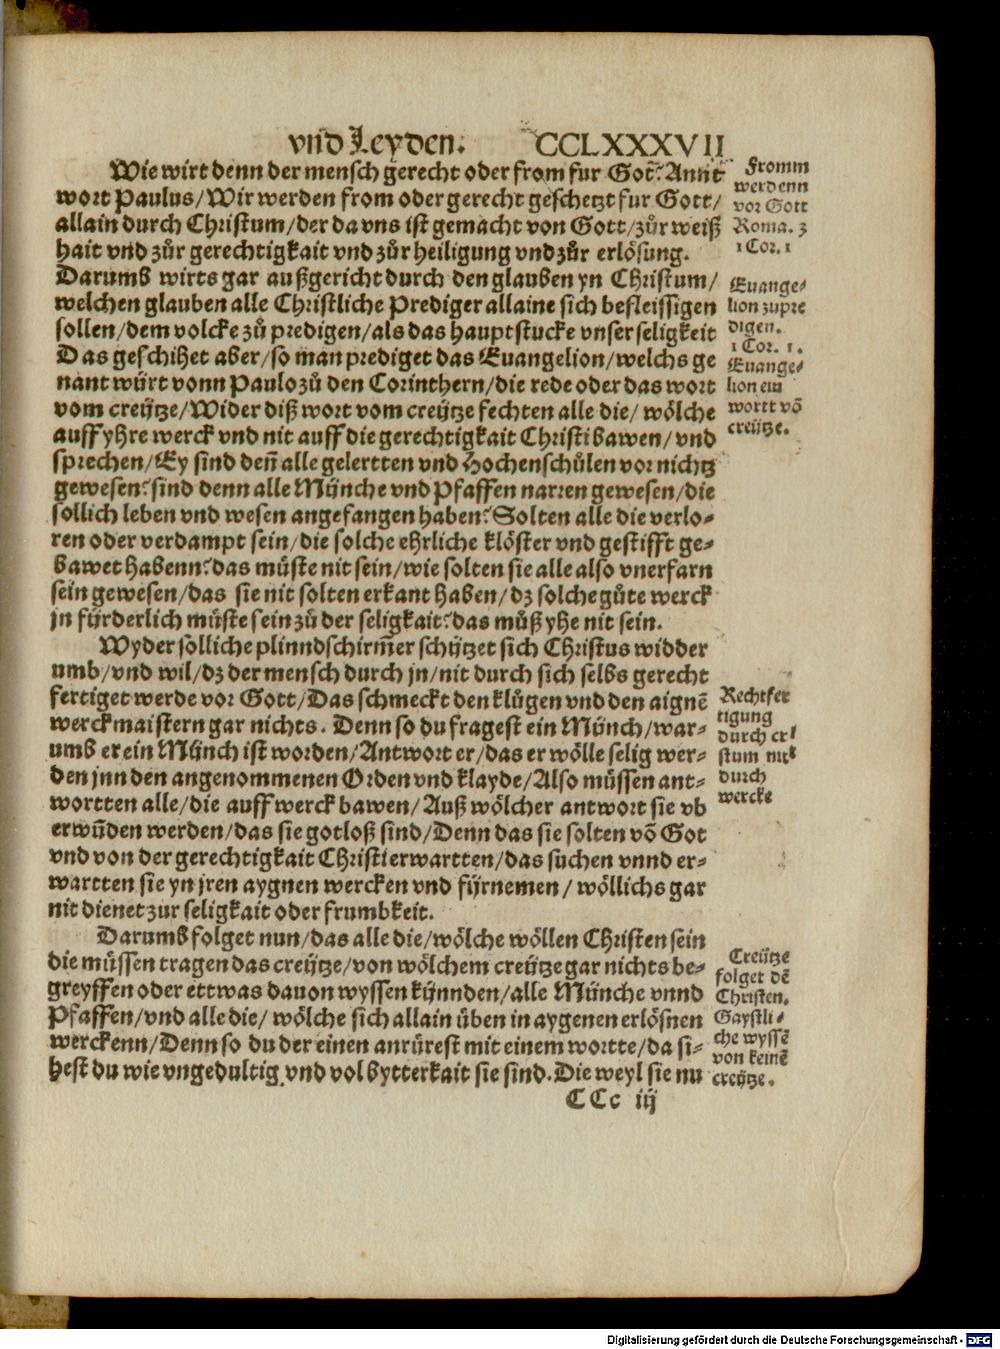 vnd Leyden. CCLXXXVII
Wie wirt denn der mensch gerecht oder from fur Got? Annt
wort Paulus/Wir werden from oder gerecht geschetzt fur Gott/
allain durch Christum/der da vns ist gemacht von Gott/zůr weiß
hait vnd zůr gerechtigkait vnd zůr heiligung vnd zůr erlösung.
Darumb wirts gar außgericht durch den glauben yn Christum/
welchen glauben alle Christliche Prediger allaine sich befleissigen
sollen/dem volcke zů predigen/als das hauptstucke vnser seligkeit
Das geschihet aber/so man prediget das Euangelion/welchs ge
nant würt vonn Paulo zů den Corinthern/die rede oder das wort
vom creütze/Wider diß wort vom creütze fechten alle die/ wölche
auff yhre werck vnd nit auff die gerechtigkait Christi bawen/vnd
sprechen/Ey sind deñ alle gelertten vnd Hochenschůlen vor nichtz
gewesen? sind denn alle Münche vnd Pfaffen narren gewesen/die
sollich leben vnd wesen angefangen haben? Solten alle die verlo-
ren oder verdampt sein/die solche ehrliche klöster vnd gestifft ge-
bawet habenn? das müste nit sein/wie solten sie alle also vnerfarn
sein gewesen/das sie nit solten erkant haben/dz solche gůte werck
jn fürderlich müste sein zů der seligkait? das můß yhe nit sein.
Wyder solliche plinndschirm̃er schützet sich Christus widder
umb/vnd wil/dz der mensch durch jn/nit durch sich selbs gerecht
fertiget werde vor Gott/Das schmeckt den klůgen vnd den aignẽ
werckmaistern gar nichts. Denn so du fragest ein Münch/war-
umb er ein Münch ist worden/Antwort er/das er wölle selig wer-
den jnn den angenommenen Orden vnd klayde/Also müssen ant-
wortten alle/die auff werck bawen/Auß wölcher antwort sie vb
erwũden werden/das sie gotloß sind/Denn das sie solten võ Got
vnd von der gerechtigkait Christi erwartten/das suchen vnnd er-
wartten sie yn jren aygnen wercken vnd fürnemen/ wöllichs gar
nit dienet zur seligkait oder frumbkeit.
Darumb folget nun/das alle die/wölche wöllen Christen sein
die müssen tragen das creütze/von wölchem creütze gar nichts be-
greyffen oder ettwas dauon wyssen künnden/alle Münche vnnd
Pfaffen/vnd alle die/ wölche sich allain üben in aygenen erlösnen
werckenn/Denn so du der einen anrürest mit einem wortte/da si-
hest du wie vngedultig vnd vol bytterkait sie sind. Die weyl sie nu
CCc iij
Fromm
werdenn
vor Gott
Roma. 3
1 Cor. 1
Euange-
lion zupre
digen.
1 Cor. 1.
Euange-
lion ein
wortt võ
creütze.
Rechtfer
tigung
durch cri
stum nit
durch
wercke
Creütze
folget dẽ
Christen.
Gaystli-
che wyssẽ
von keinẽ
creütze.
Digitalisierung gefördert durch die Deutsche Forschungsgemeinschaft - DFG